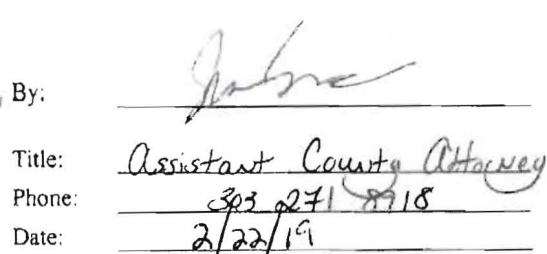 By:
Title: Assistant County Attorney
Phone: 303 271 8918
Date: 2/22/19